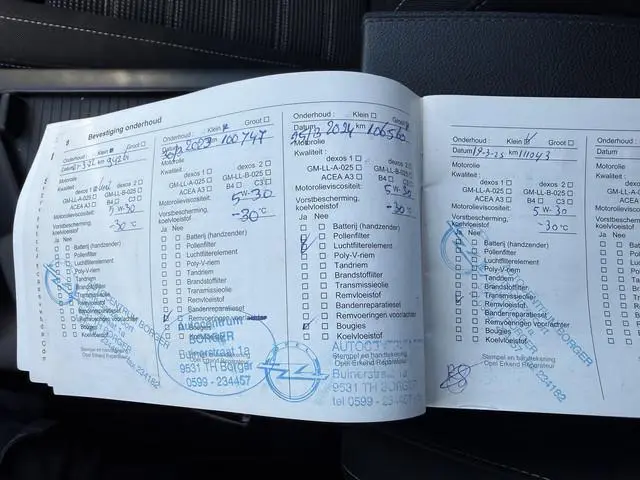 8
Bevestiging onderhoud
Onderhoud : Klein Groot
Datum km
Motorolie
Kwaliteit :
dexos 1 dexos 2
GM-LL-A-025 GM-LL-B-025
ACEA A3 B4 C3
Motorolieviscositeit:
5-W-30
Vorstbescherming,
koelvloeistof
-30°C
Ja Nee
Batterij (handzender)
Pollenfilter
Luchtfilterelement
Poly-V-riem
Tandriem
Brandstoffilter
Transmissieolie
Remvloeistof
Bandenreparatieset
Bougies
Koelvloeistof
Onderhoud : Klein Groot
Datum 2023 km 100747
Motorolie
Kwaliteit :
dexos 1 dexos 2
GM-LL-A-025 GM-LL-B-025
ACEA A3 B4 C3
Motorolieviscositeit:
5-W-30
Vorstbescherming,
koelvloeistof
-30°C
Ja Nee
Batterij (handzender)
Pollenfilter
Luchtfilterelement
Poly-V-riem
Tandriem
Brandstoffilter
Transmissieolie
Remvloeistof
Bandenreparatieset
Remvoeringen
Autocentrum
BORGER
Buinerstraat 1a
9531 TH Borger
0599 - 234457
Onderhoud : Klein Groot
Datum 2024 km 106560
Motorolie
Kwaliteit :
dexos 1 dexos 2
GM-LL-A-025 GM-LL-B-025
ACEA A3 B4 C3
Motorolieviscositeit:
5-W-30
Vorstbescherming,
koelvloeistof
-30°C
Ja Nee
Batterij (handzender)
Pollenfilter
Luchtfilterelement
Poly-V-riem
Tandriem
Brandstoffilter
Transmissieolie
Remvloeistof
Bandenreparatieset
Remvoeringen voor/achter
Bougies
Koelvloeistof
Stempel en handtekening
Opel Erkend Reparateur
OPEL
Buinerstraat 1a
9531 TH BORGER
tel 0599 - 234457
Onderhoud : Klein Groot
Datum 19-3-25 km 111043
Motorolie
Kwaliteit :
dexos 1 dexos 2
GM-LL-A-025 GM-LL-B-025
ACEA A3 B4 C3
Motorolieviscositeit:
5W-30
Vorstbescherming,
koelvloeistof
-30°C
Ja Nee
Batterij (handzender)
Pollenfilter
Luchtfilterelement
Poly-V-riem
Tandriem
Brandstoffilter
Transmissieolie
Remvloeistof
Bandenreparatieset
Remvoeringen voor/achter
Bougies
Koelvloeistof
Stempel en handtekening
Opel Erkend Reparateur
Onderhoud :
Datum
Motorolie
Kwaliteit :